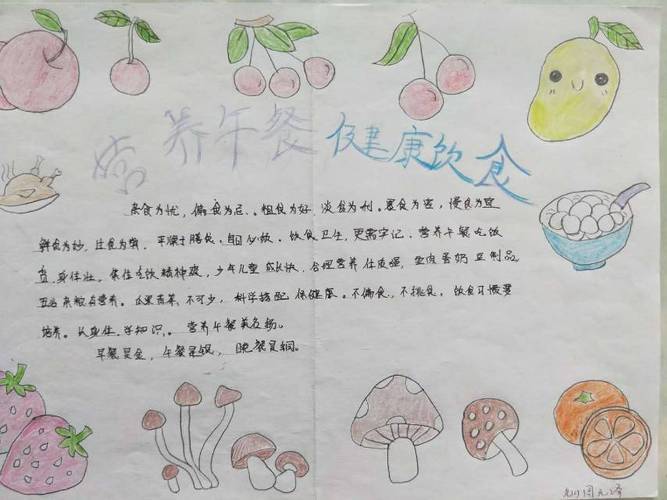 营养午餐 健康饮食
杂食为优，偏食为忌。粗食为好 淡食为利。暴食为害，慢食为宜
鲜食为妙，过食为弊。平衡膳食，自必极。饮食卫生，更需牢记。营养午餐吃饭
身体壮。保住吃饭精神爽，少年儿童 成长快，合理营养 体质强，鱼肉蛋奶 豆制品
五谷杂粮有营养。瓜果青菜，不可少，科学搭配 保健康。不偏食，不挑食，饮食习惯要
培养。长身体 学知识。营养午餐
早餐是金，午餐是银，晚餐是铜。